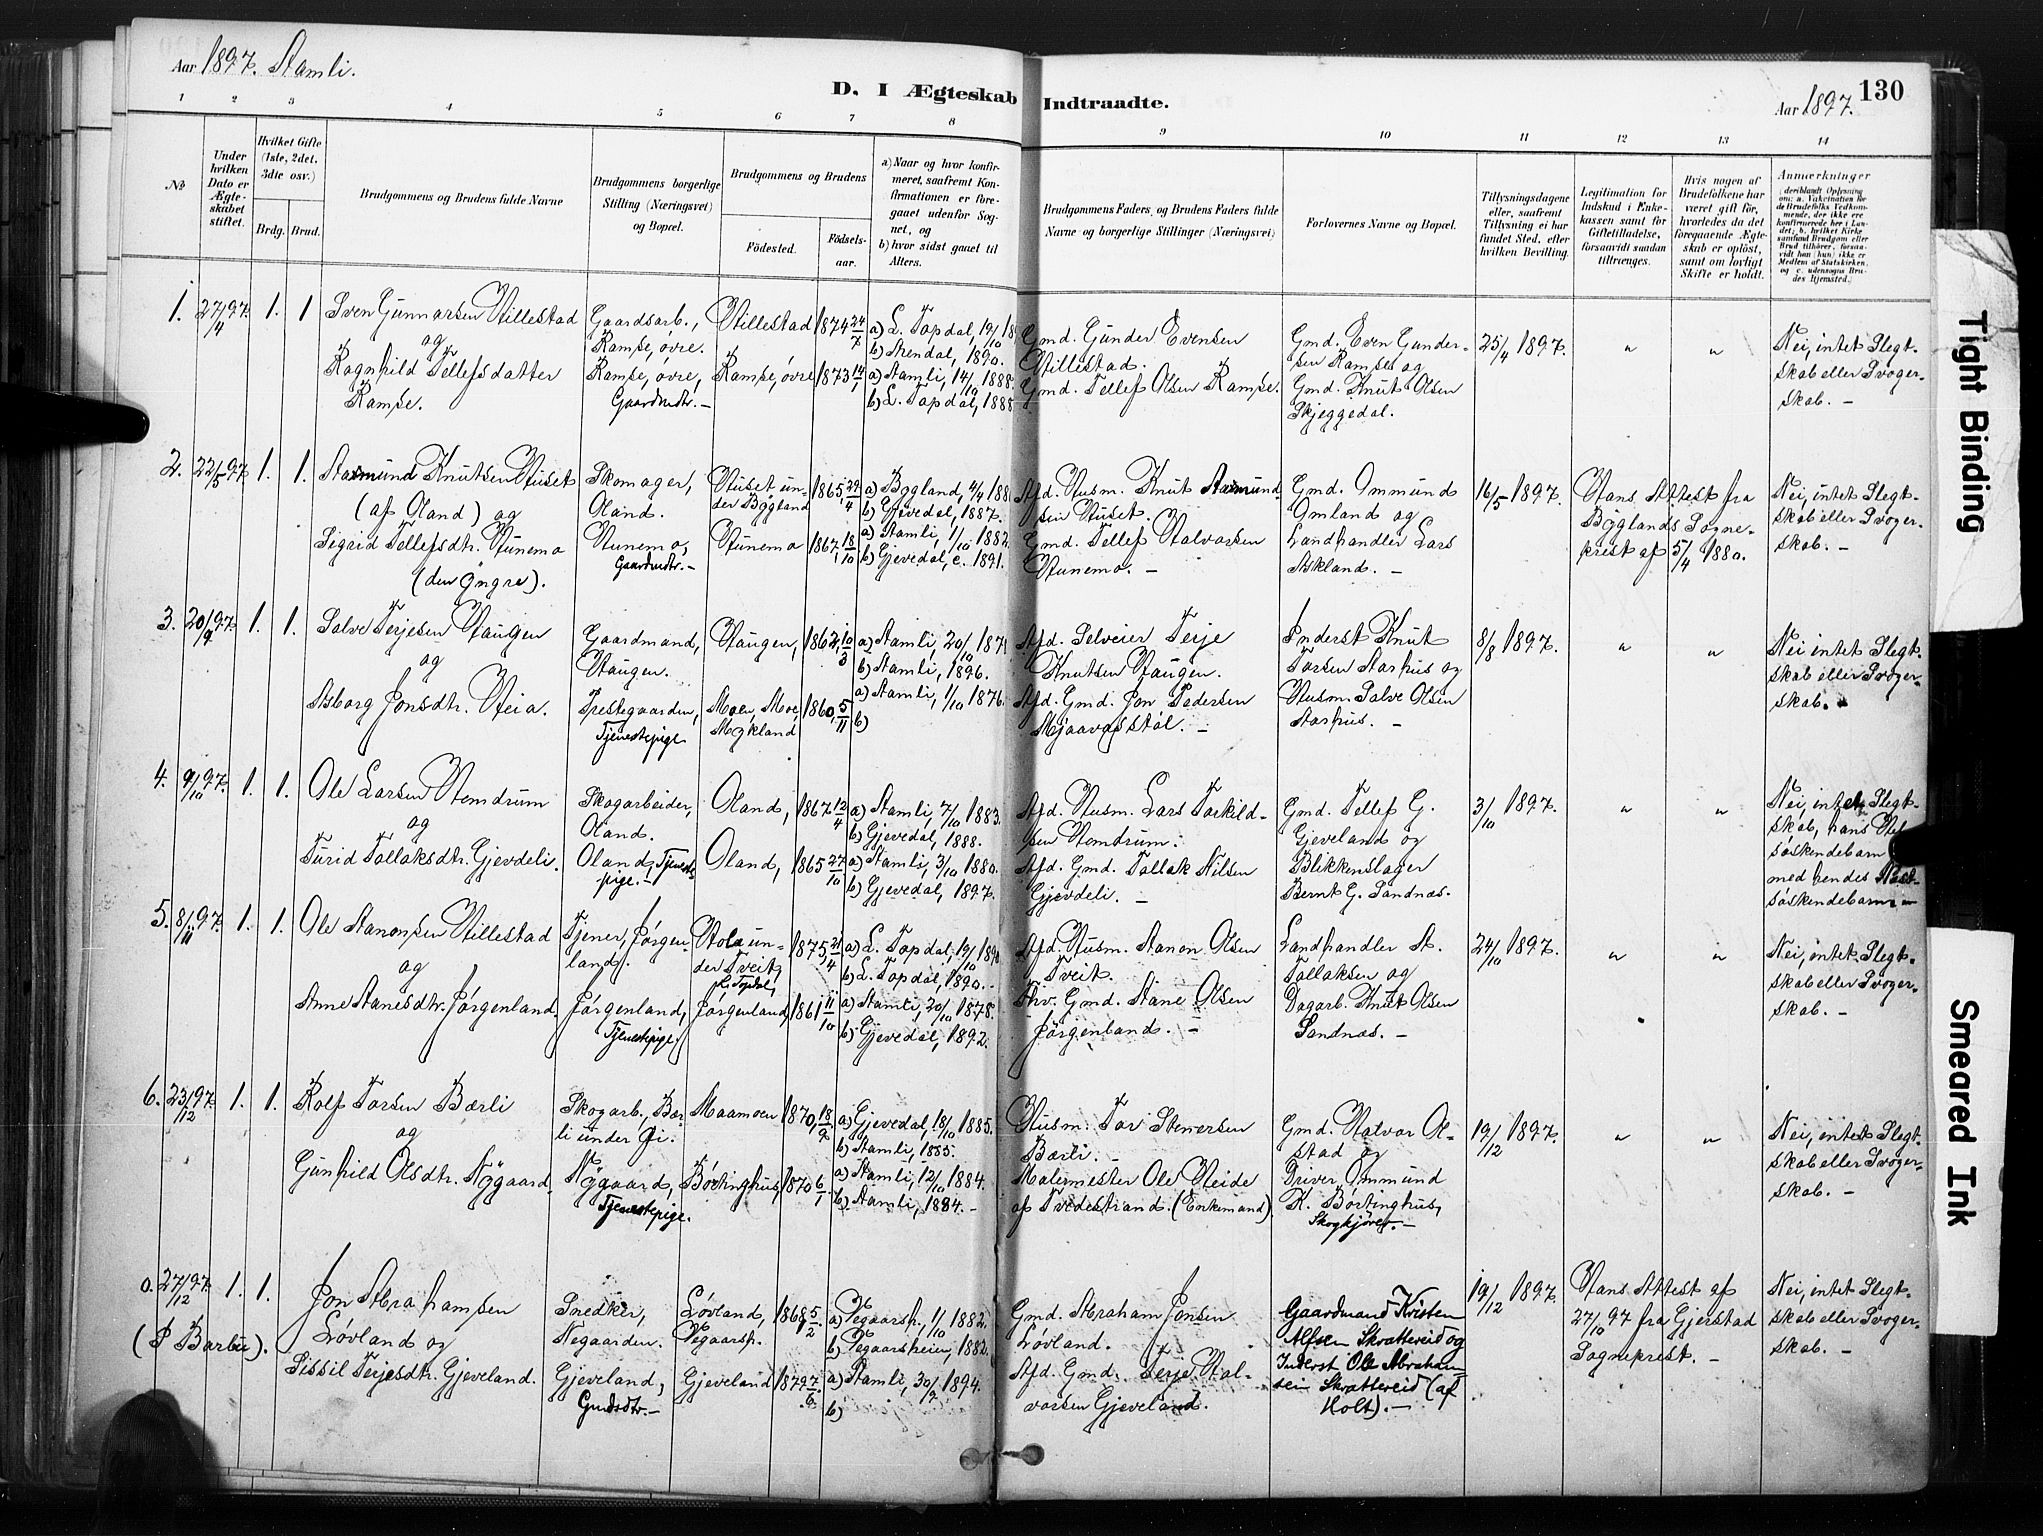 Aar 1897. Aamli.
D. I Ægteskab Indtraadte.
Aar 1897. 130
1 2 3 4 5 6 7 8 9 10 11 12 13 14
No
Under hvilken Dato er Ægteskabet stiftet.
Hvilket Gifte (1ste, 2det, 3die osv.)
Brdg. Brud.
Brudgommens og Brudens fulde Navne
Brudgommens borgerlige Stilling (Næringsvei) og Bopæl.
Brudgommens og Brudens
Födested. Födselsaar.
a) Naar og hvor konfirmeret, saafremt Konfirmationen er foregaaet udenfor Sognet, og
b) hvor sidst gaaet til Alters.
Brudgommens Faders, og Brudens Faders fulde Navne og borgerlige Stillinger (Næringsvei)
Forlovernes Navne og Bopæl.
Tillysningsdagene eller, saafremt Tillysning ei har fundet Sted, efter hvilken Bevilling.
Legitimation for Indskud i Enkekassen samt for Giftetilladelse, forsaavidt saadan tiltrænges.
Hvis nogen af Brudefolkene har været gift för, hvorledes da det foregaaende Ægteskab er oplöst, samt om lovligt Skifte er holdt.
Anmærkninger
(deriblandt Oplysning om: a. Vakcination for de Brudefolks Vedkommende, der ikke ere konfirmerede her i Landet; b. hvilket Kirkesamfund Brudgom eller Brud tilhörer, forsaavidt han (hun) ikke er Medlem af Statskirken, og c. udensogns Brudes Hjemsted.)
1. 27/4 97. 1. 1
Sven Gunnarsen Hillestad
og
Ragnhild Tellefsdatter
Ramse.
Gaardsarb.,
Ramse, øvre.
Ramse, øvre,
Gaardmdtr. –
Hillestad 1874 24/7
Ramse, øvre 1873 14/1
a) L. Topdal, 19/10 18
b) Arendal, 1890.
a) Aamli, 14/10 1888.
b) L. Topdal, 1888
Gmd. Gunder Evensen
Hillestad.
Gmd. Tellef Olsen Ramse.
Gmd. Even Gunder-
sen Ramse og
Gmd. Knut Olsen
Skjeggedal.
25/4 1897.
"
"
Nei, intet Slegt-
skab eller Svoger-
skab. –
2. 22/5 97 1. 1.
Aasmund Knutsen Huset
(af Oland) og
Sigrid Tellefsdtr. Hunemo
(den Yngre).
Skomager,
Oland.
Hunemo,
Gaardmdtr. –
Huset un-
der Bygland 1865, 29/4
Hunemo 1867, 18/10
a) Bygland, 4/4 188
b) Gjevedal, 1887.
a) Aamli, 1/10 1882.
b) Gjevedal, c. 1891.
Afd. Husm. Knut Aasmund
sen Huset.
Gmd. Tellef Halvorsen
Hunemo. –
Gmd. Ommund
Omland og
Landhandler Lars
Askland. –
16/5 1897.
Hans Attest fra
Byglands Sogne-
prest af 5/4 1880.
Nei, intet Slegt-
skab eller Svoger-
skab. –
3. 20/9 97. 1. 1.
Salve Terjesen Haugen
og
Asborg Jonsdtr. Heia.
Gaardmand,
Haugen.
Prestegaarden,
Tjenestepige
Haugen, 1862, 10/3
Moen, Moe,
Mykland 1860, 5/11
a) Aamli, 20/10 187
b) Aamli, 1896.
a) Aamli, 1/10 1876.
b)
Afd. Selveier Terje
Knutsen Haugen.
Afd. Gmd. Jon Pedersen
Mjaavasstöl. –
Inderst Knut
Torsen Aarhus og
Husm. Salve Olsen
Aarhus. –
8/8 1897.
"
"
Nei intet Slegt-
skab eller Svoger-
skab.
4. 9/10 97. 1. 1.
Ole Larsen Hemdrum
og
Turid Tallaksdtr. Gjevdeli.
Skogarbeider,
Oland.
Oland, Tjeneste-
pige. –
Oland, 1867 12/4
Oland, 1865 27/10
a) Aamli, 7/10 1883.
b) Gjevedal, 1888.
a) Aamli, 3/10 1880.
b) Gjevedal, 1897.
Afd. Husm. Lars Torkild-
sen Hemdrum.
Afd. Gmd. Tallak Nilsen
Gjevdeli. –
Gmd. Tellef G.
Gjeveland og
Blikkenslager
Bernt G. Sandnæs.
3/10 1897.
"
"
Nei, intet Slegt-
skab, hans
söskendebarn
med hendes
söskendebarn. –
5. 8/11 97. 1. 1.
Ole Aanonsen Hillestad
og
Anne Aanesdtr. Jørgenland.
Tjener, Jørgen-
land.
Jørgenland,
Tjenestepige.
Hola un-
der Tveit,
L. Topdal, 1875, 21/4
Jørgenland, 1861 11/10
a) L. Topdal, 19/10 1890
b) L. Topdal, 1890. –
a) Aamli, 20/10 1878.
b) Gjevedal, 1892.
Afd. Husm. Aanon Olsen
Tveit.
Gmd. Aane Olsen
Jørgenland. –
Landhandler A.
Tallaksen og
Dagarb. Knut Olsen
Sandnæs. –
24/10 1897.
"
"
Nei, intet Slegt-
skab eller Svoger-
skab. –
6. 23/12 97. 1. 1.
Rolf Torsen Bærli
og
Gunhild Olsdtr. Nygaard.
Skogarb., Bær-
li under Øi.
Nygaard,
Tjenestepige.
Maamoen 1870, 18/9
Børtinghus, 1870 6/1
a) Gjevedal, 18/10 1885.
b) Aamli, 1885.
a) Aamli, 12/10 1884.
b) Aamli, 1884. –
Husm. Tor Stenersen
Bærli. –
Malermester Ole Heide
af Tvedestrand. (Enkemand)
Gmd. Halvor Ol-
stad og
Driver Ommund
K. Børtinghus,
Skogkjører. –
19/12 1897.
"
"
Nei, intet Slegt-
skab eller Svoger-
skab. –
0. 27/12 97 1. 1.
(I Barbu).
Jon Abrahamsen
Løvland og
Sissil Terjesdtr. Gjeveland.
Snedker,
Negaarden.
Gjeveland,
Gmdsdtr. –
Løvland,
Vegaarsh. 1868, 5/2
Gjeveland 1879 7/6
a) Vegaarsh., 1/10 1882.
b) Vegaarsheien, 1882.
a) Aamli, 30/9 1894.
b)
Gmd. Abraham Jonsen
Løvland.
Afd. Gmd. Terje Hal-
vorsen Gjeveland.
Gaardmand Kristen
Alfsen Skrattereid og
Inderst Ole Abraham-
sen Skrattereid (af
Holt). –
19/12 1897.
Hans Attest af
27/10 97 fra Gjerstad
Sogneprest. –
Nei, intet Slegt-
skab eller Svoger-
skab. –
Tight Binding
Smeared Ink